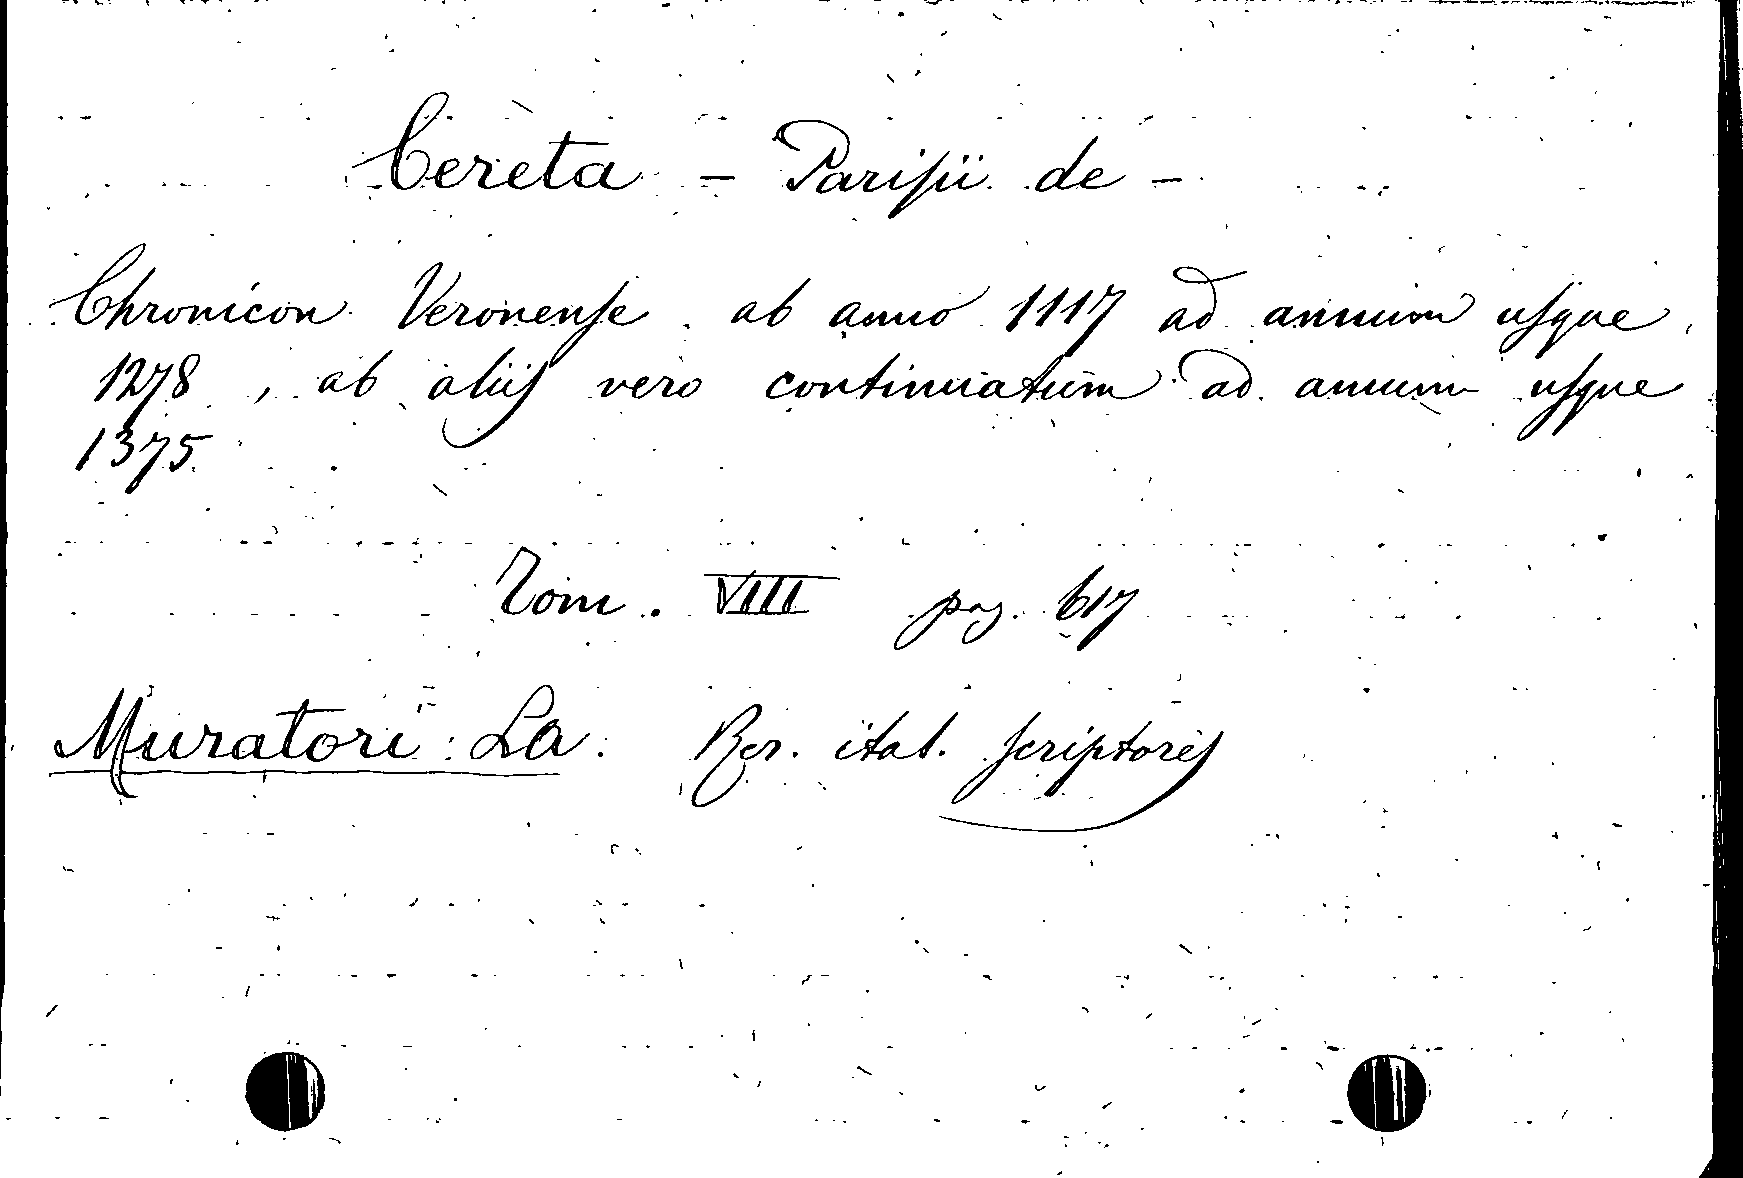 Cereta - Parisii de -
Chronicon Veronense ab anno 1117 ad annum usque
1278, ab aliis vero continuatum ad annum usque
1375.
Tom. VIII pag. 617
Muratori: La. Rer. ital. scriptores